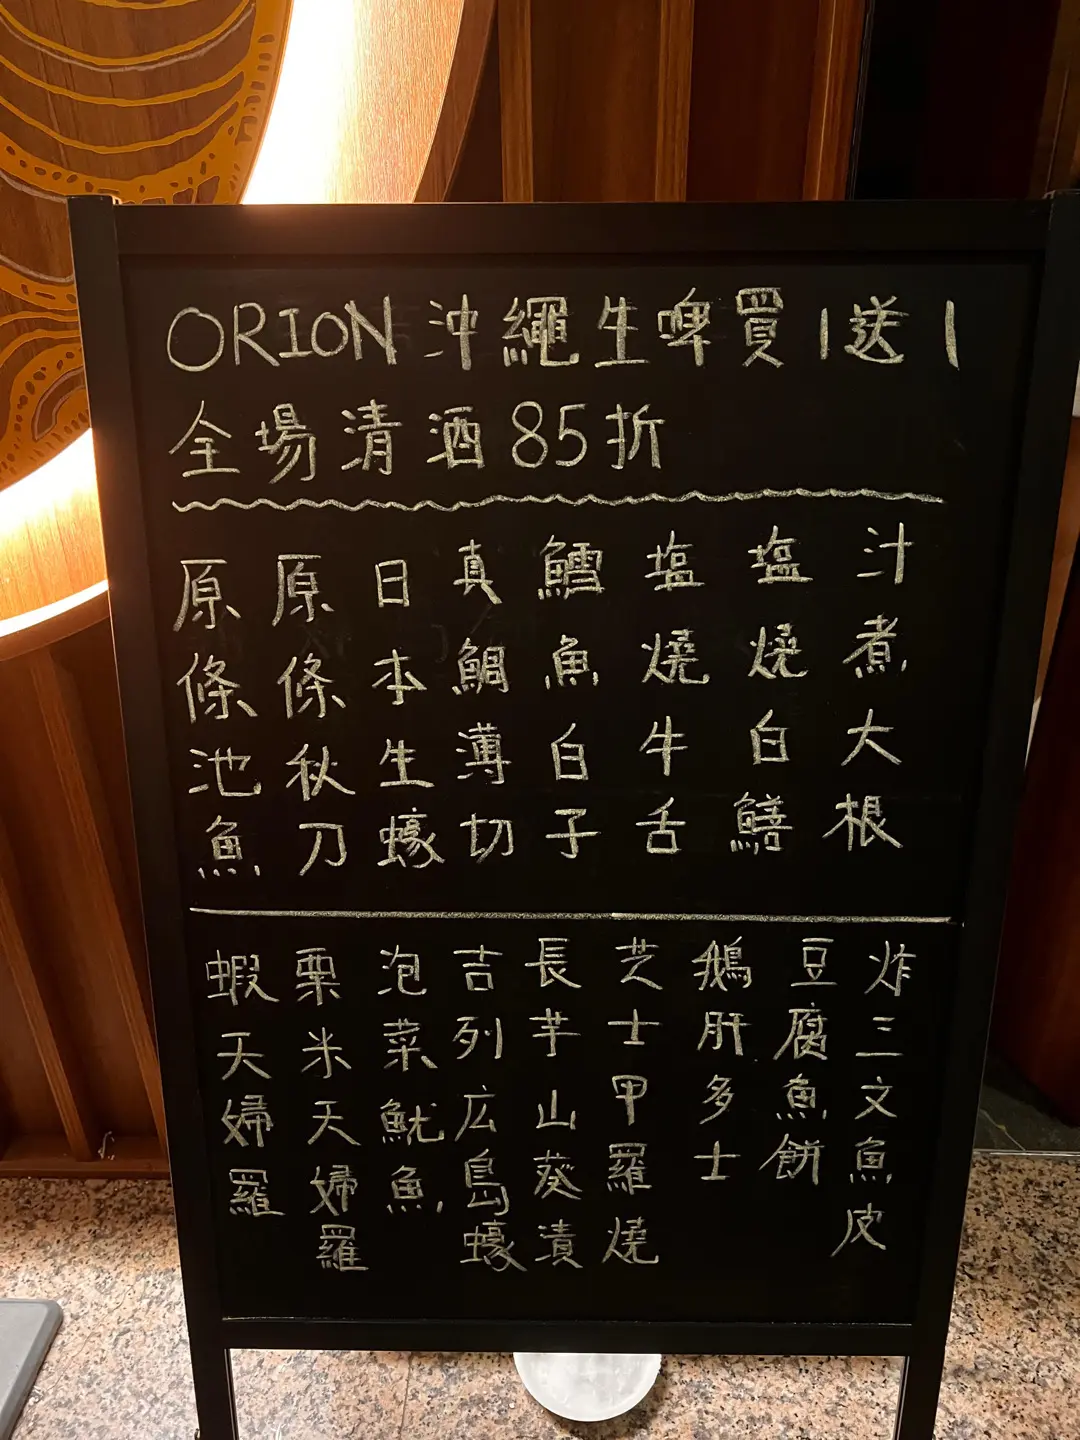 ORION 沖繩生啤買1送1
全場清酒85折
汁煮大根
塩燒白鱔
塩燒牛舌
鱈魚白子
真鯛薄切
日本生蠔
原條秋刀
原條池魚
炸三文魚皮
豆腐魚餅
鵝肝多士
芝士甲羅燒
長芋山葵漬
吉列広島蠔
泡菜魷魚
粟米天婦羅
蝦天婦羅